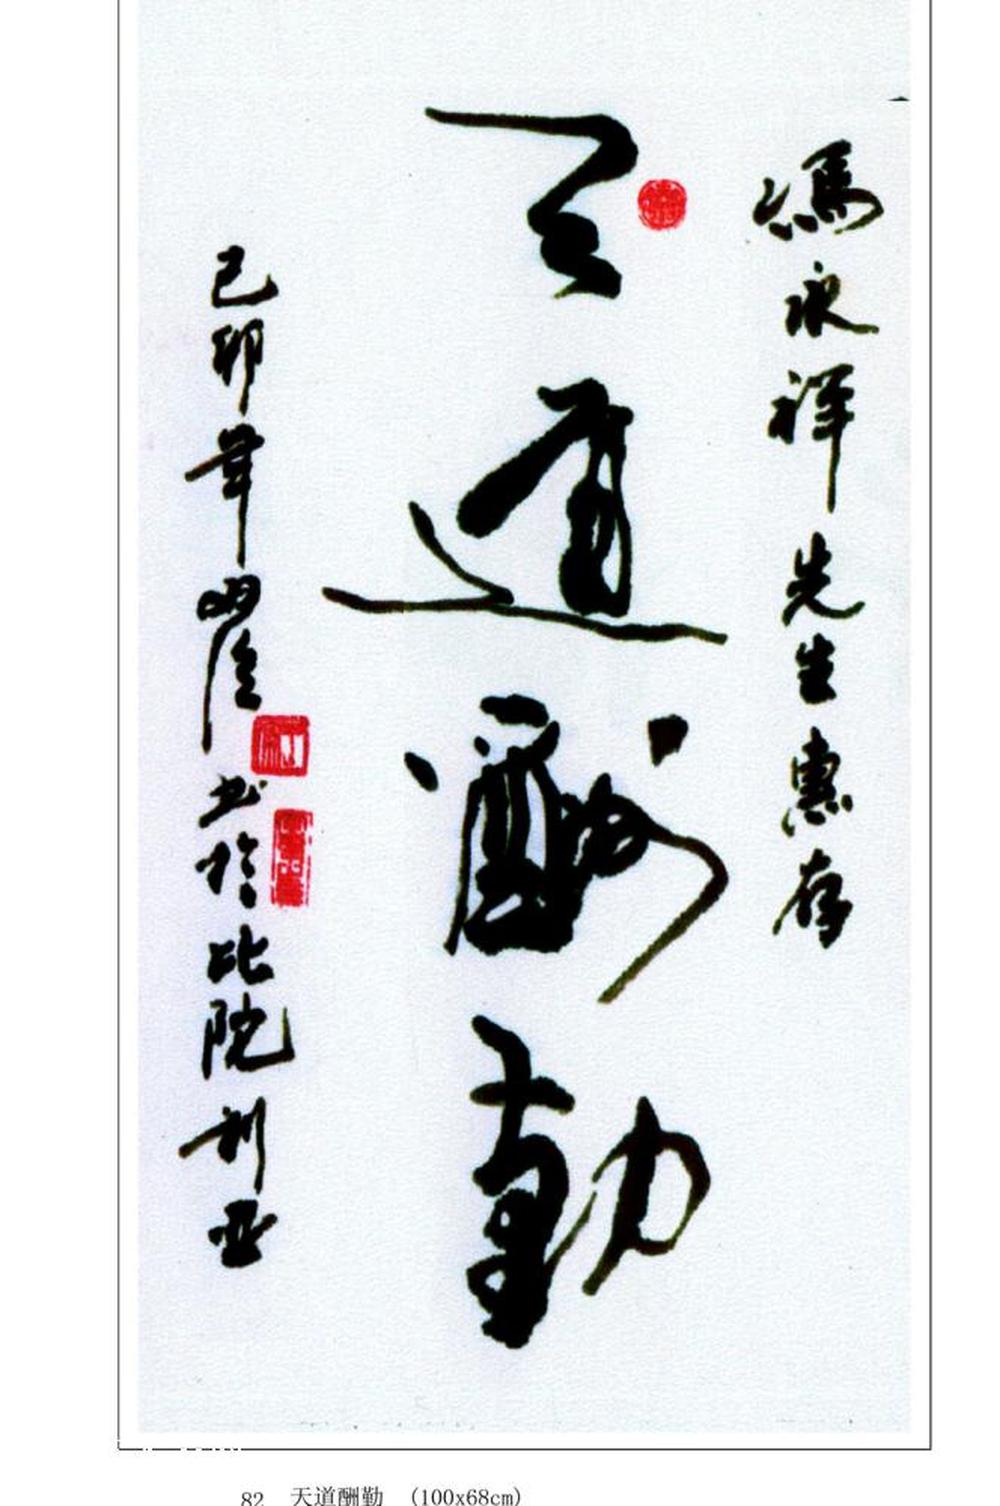 馮永祥先生惠存
天道酬勤
己卯 书於比院利亚
82 天道酬勤 (100x68cm)